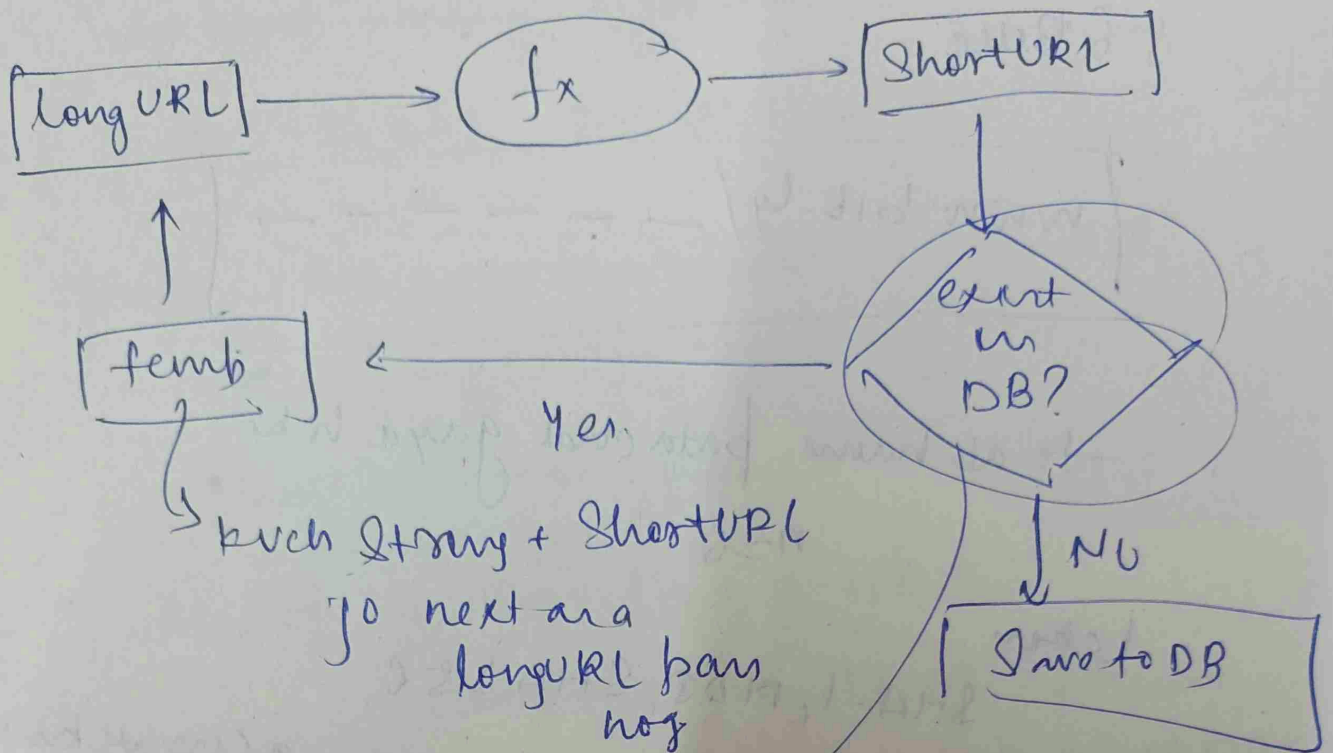 longURL
fx
ShortURL
exist
in
DB?
temp
Yes.
kuch String + ShortURL
jo next ara
longURL ban
NO
Save to DB